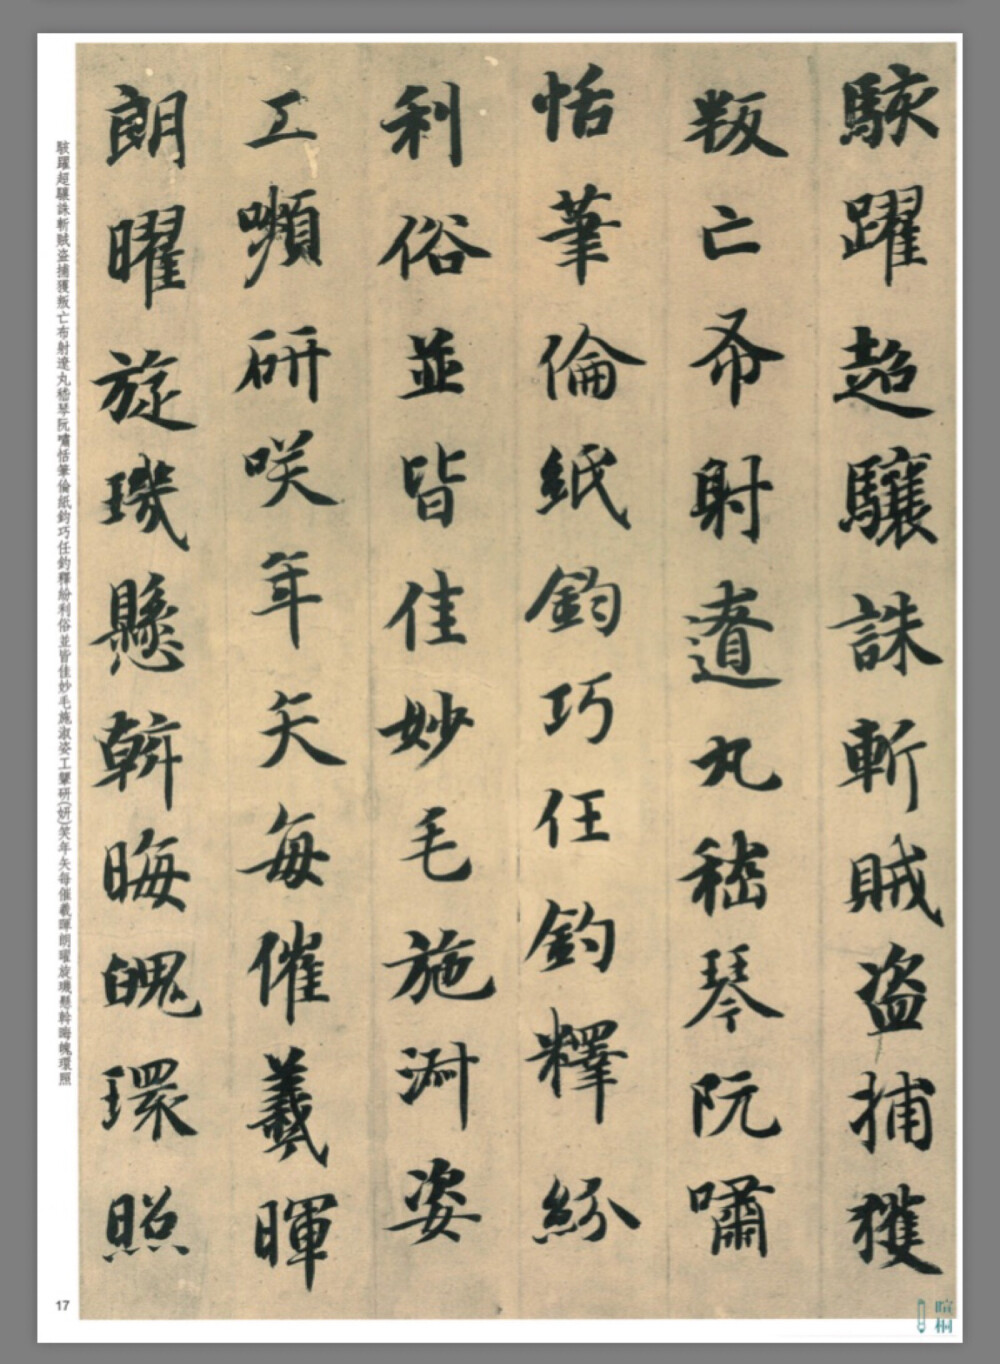 駭躍超驤誅斬賊盜捕獲
叛亡布射遼丸嵇琴阮嘯
恬筆倫紙鈞巧任釣釋紛
利俗並皆佳妙毛施淑姿
工嚬研咲年矢每催羲暉
朗曜旋璣懸斡晦魄環照
駭躍超驤誅斬賊盜捕獲叛亡布射遼丸嵇琴阮嘯恬筆倫紙鈞巧任釣釋紛利俗並皆佳妙毛施淑姿工顰研(妍)笑年矢每催羲暉朗曜旋璣懸斡晦魄環照
17
暄桐